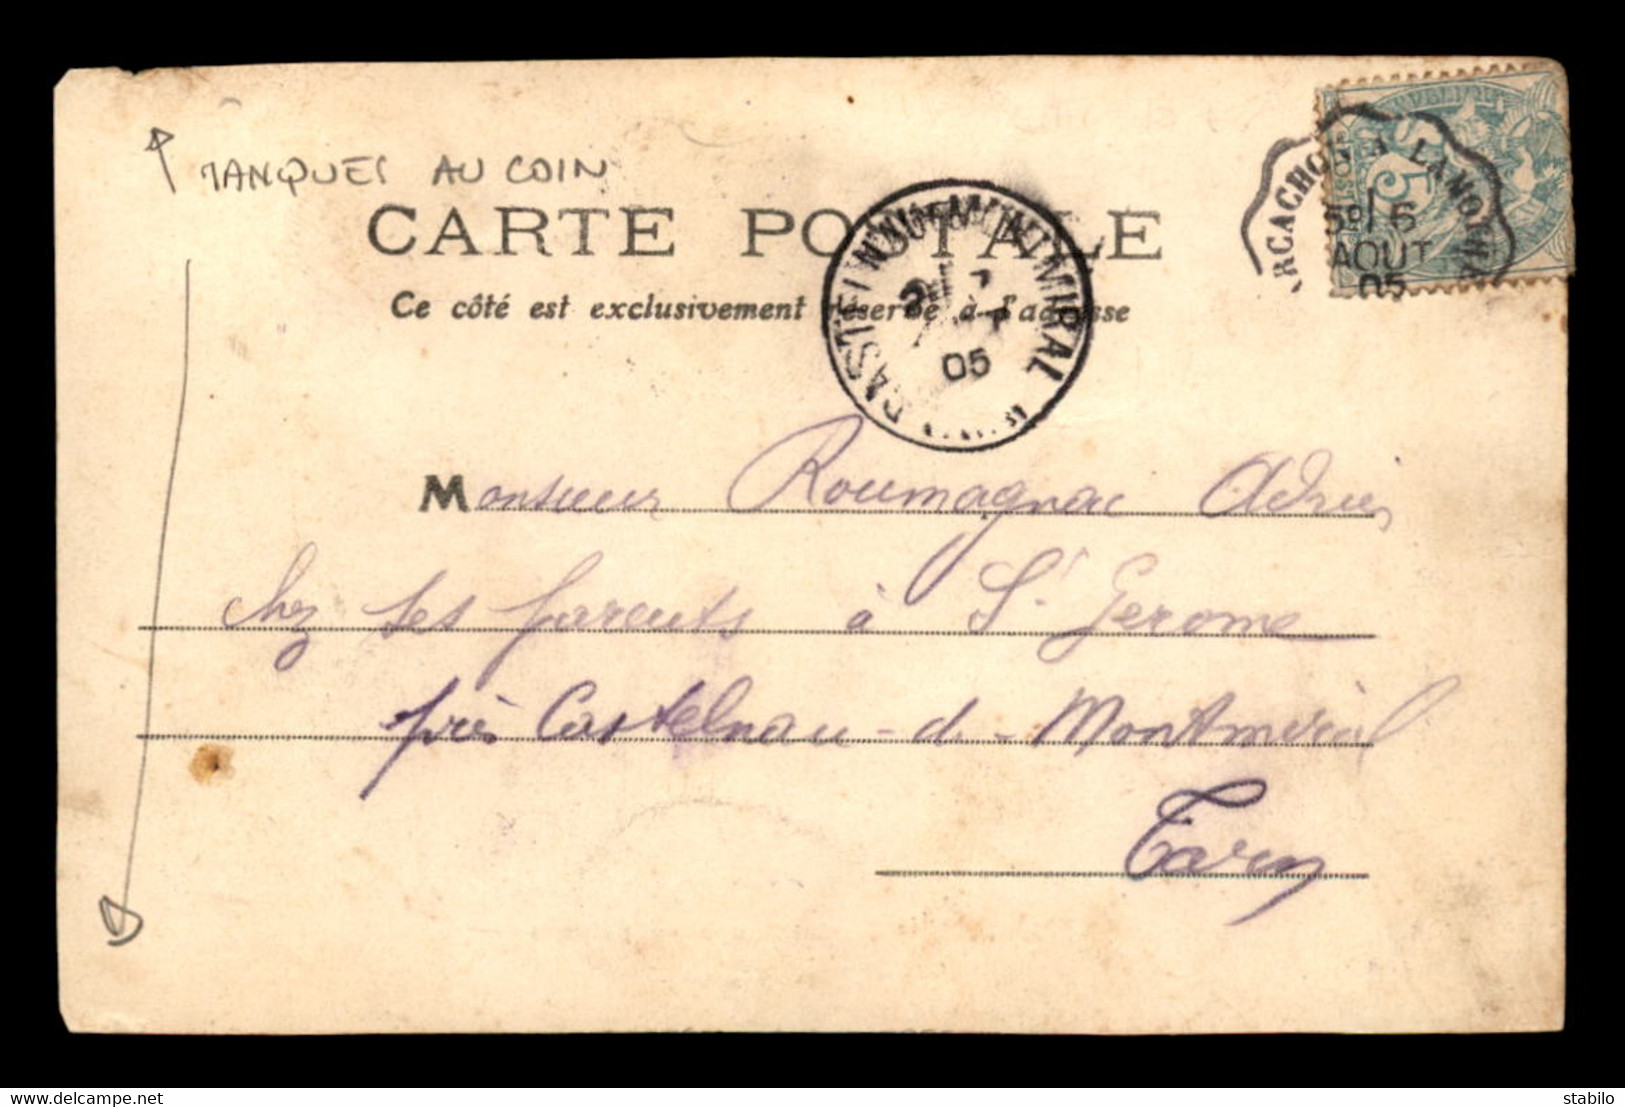 MANQUES AU COIN
CARTE POSTALE
Ce côté est exclusivement réservé à l'adresse
ARCACHON À LAMOTHE
5e 6
AOUT
05
CASTELNAU-MONTMIRAL
7
05
Monsieur Roumagnac Adrien
chez ses parents à St Gerome
près Castelnau-de-Montmiral
Tarn
www.delcampe.net
stabilo